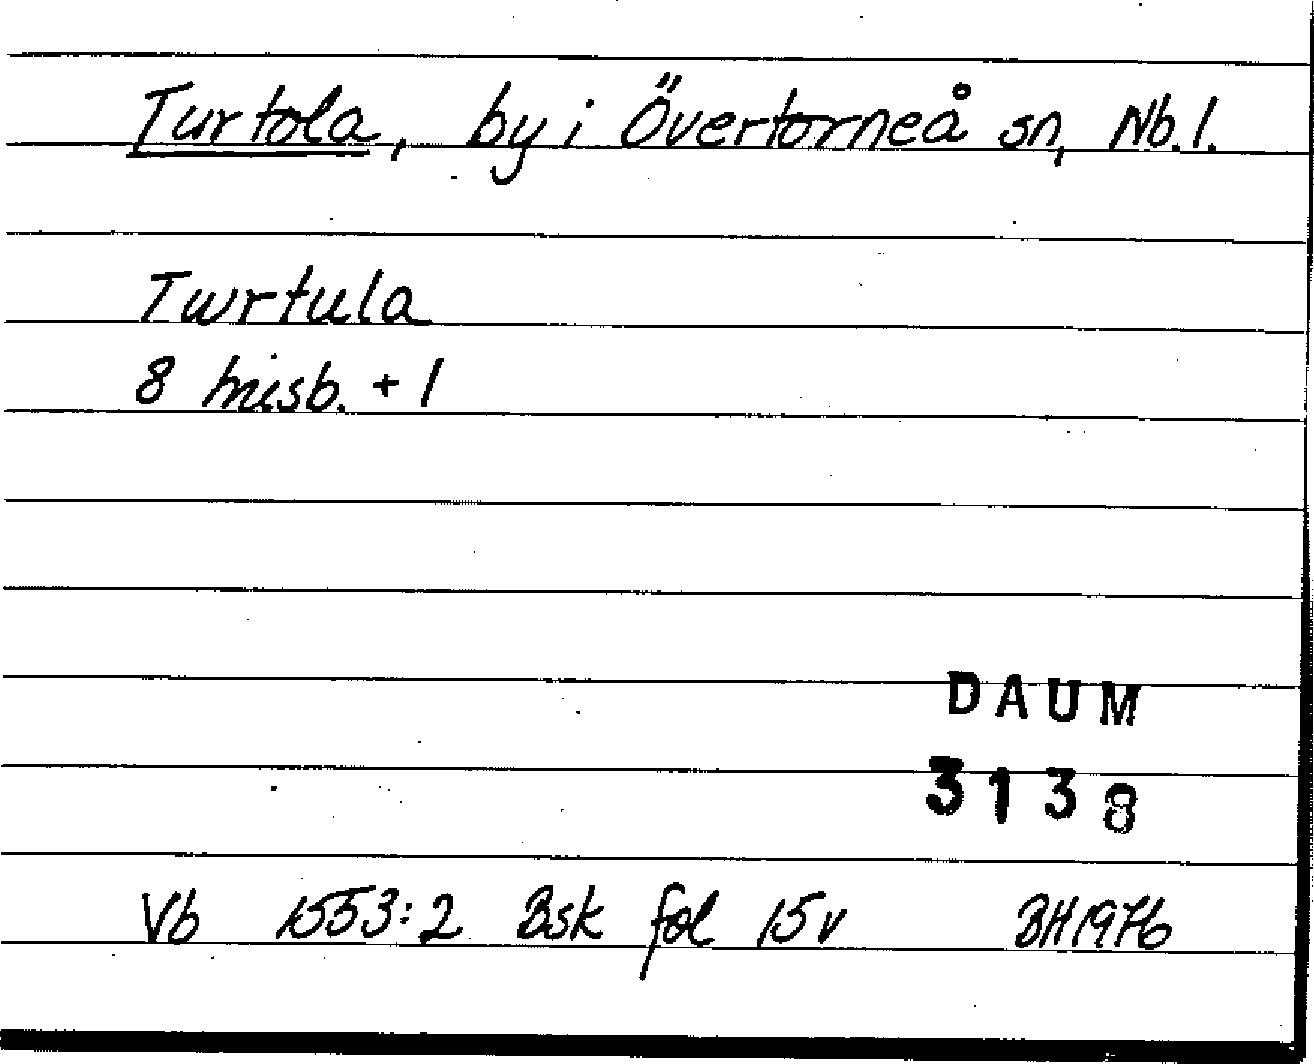 Turtola, by i Övertorneå sn, Nb. l.
Twrtula
8 hmsb. + 1
DAUM
3138
Vb 1553:2 Bsk fol 15v BH 1976